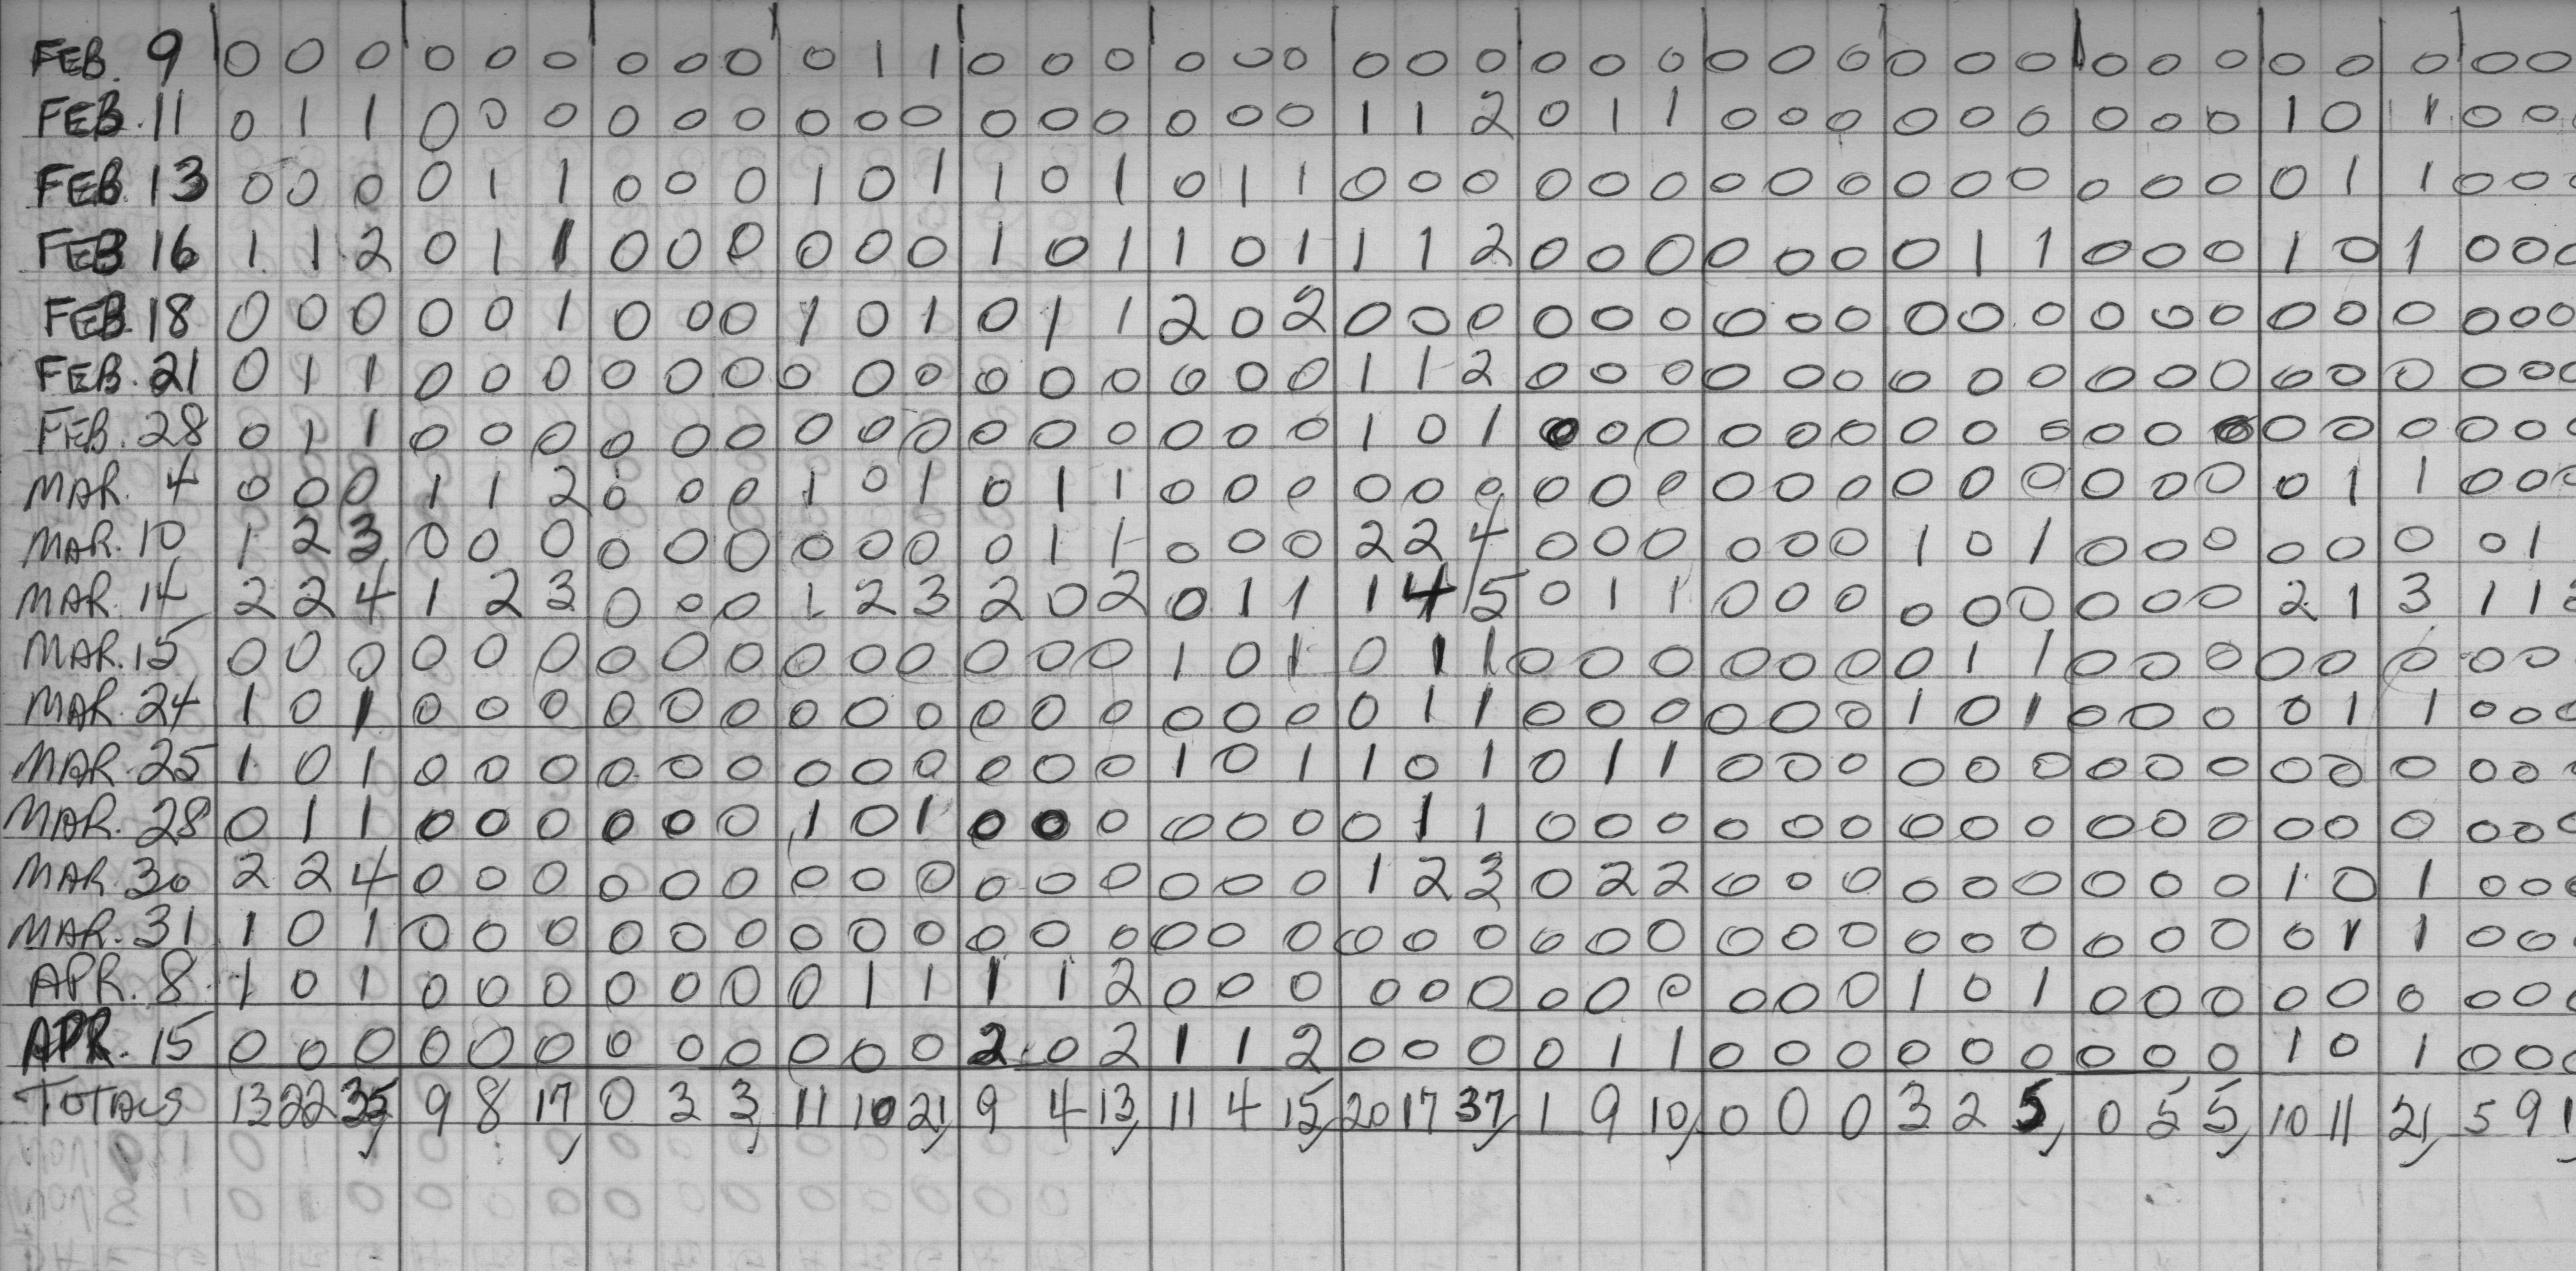 FEB. 9 0 0 0 0 0 0 0 0 0 0 1 1 0 0 0 0 0 0 0 0 0 0 0 0 0 0 0 0 0 0 0 0 0 0 0 0 0 0
FEB. 11 0 1 1 0 0 0 0 0 0 0 0 0 0 0 0 0 0 0 1 1 2 0 1 1 0 0 0 0 0 0 0 0 0 1 0 1 0 0
FEB. 13 0 0 0 0 1 1 0 0 0 1 0 1 1 0 1 0 1 1 0 0 0 0 0 0 0 0 0 0 0 0 0 0 0 0 1 1 0 0 0
FEB 16 1 1 2 0 1 1 0 0 0 0 0 0 1 0 1 1 0 1 1 1 2 0 0 0 0 0 0 0 1 1 0 0 0 1 0 1 0 0 0
FEB. 18 0 0 0 0 0 1 0 0 0 1 0 1 0 1 1 2 0 2 0 0 0 0 0 0 0 0 0 0 0 0 0 0 0 0 0 0 0 0 0
FEB. 21 0 1 1 0 0 0 0 0 0 0 0 0 0 0 0 0 0 0 1 1 2 0 0 0 0 0 0 0 0 0 0 0 0 0 0 0 0 0 0
FEB. 28 0 1 1 0 0 0 0 0 0 0 0 0 0 0 0 0 0 0 1 0 1 0 0 0 0 0 0 0 0 0 0 0 0 0 0 0 0 0 0
MAR. 4 0 0 0 1 1 2 0 0 0 1 0 1 0 1 1 0 0 0 0 0 0 0 0 0 0 0 0 0 0 0 0 0 0 0 1 1 0 0 0
MAR. 10 1 2 3 0 0 0 0 0 0 0 0 0 0 1 1 0 0 0 2 2 4 0 0 0 0 0 0 1 0 1 0 0 0 0 0 0 0 1
MAR. 14 2 2 4 1 2 3 0 0 0 1 2 3 2 0 2 0 1 1 1 4 5 0 1 1 0 0 0 0 0 0 0 0 0 2 1 3 1 1
MAR. 15 0 0 0 0 0 0 0 0 0 0 0 0 0 0 0 1 0 1 0 1 1 0 0 0 0 0 0 0 1 1 0 0 0 0 0 0 0 0
MAR. 24 1 0 1 0 0 0 0 0 0 0 0 0 0 0 0 0 0 0 0 1 1 0 0 0 0 0 0 1 0 1 0 0 0 0 1 1 0 0 0
MAR. 25 1 0 1 0 0 0 0 0 0 0 0 0 0 0 0 1 0 1 1 0 1 0 1 1 0 0 0 0 0 0 0 0 0 0 0 0 0 0
MAR. 28 0 1 1 0 0 0 0 0 0 1 0 1 0 0 0 0 0 0 0 1 1 0 0 0 0 0 0 0 0 0 0 0 0 0 0 0 0 0 0
MAR. 30 2 2 4 0 0 0 0 0 0 0 0 0 0 0 0 0 0 0 1 2 3 0 2 2 0 0 0 0 0 0 0 0 0 1 0 1 0 0 0
MAR. 31 1 0 1 0 0 0 0 0 0 0 0 0 0 0 0 0 0 0 0 0 0 0 0 0 0 0 0 0 0 0 0 0 0 0 1 1 0 0 0
APR. 8 1 0 1 0 0 0 0 0 0 0 1 1 1 1 2 0 0 0 0 0 0 0 0 0 0 0 0 1 0 1 0 0 0 0 0 0 0 0 0
APR. 15 0 0 0 0 0 0 0 0 0 0 0 0 2 0 2 1 1 2 0 0 0 0 1 1 0 0 0 0 0 0 0 0 0 1 0 1 0 0 0
TOTALS 13 22 35 9 8 17 0 3 3 11 10 21 9 4 13 11 4 15 20 17 37 1 9 10 0 0 0 3 2 5 0 5 5 10 11 21 5 9